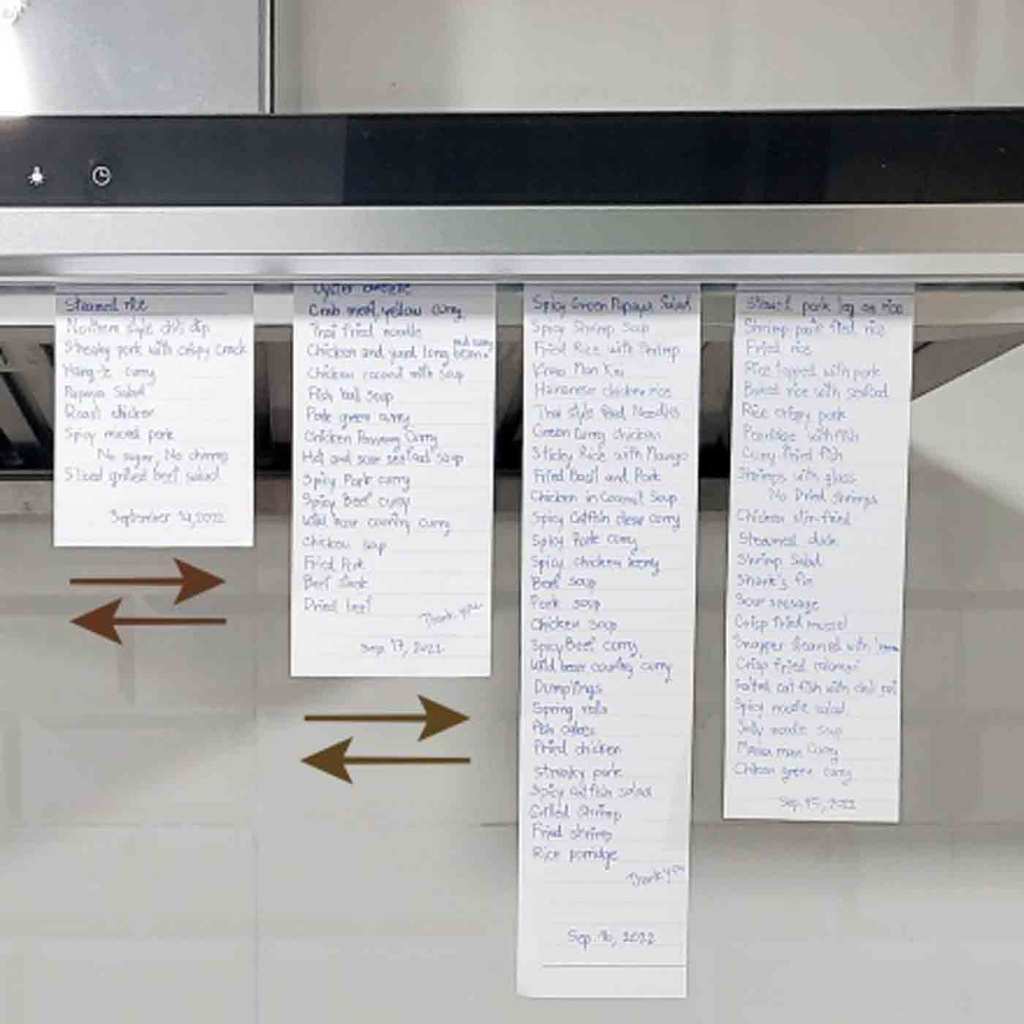 Steamed rice
Northern style chili dip
Streaky pork with crispy crack
Hang-le curry
Papaya Salad
Roast chicken
Spicy minced pork
No sugar, No shrimp
Sliced grilled beef salad
September 14, 2022
Oyster omelette
Crab meat, yellow curry
Thai fried noodle
Chicken and yard long bean
Chicken coconut milk soup
Fish ball soup
Pork green curry
Chicken Panang Curry
Hot and sour seafood soup
Spicy Pork curry
Spicy Beef curry
Wild boar country curry
Chicken soup
Fried Pork
Beef Steak
Dried beef
Thank you
Sep. 17, 2022
Spicy Green Papaya Salad
Spicy Shrimp Soup
Fried Rice with Shrimp
Khao Man Kai
Hainanese chicken rice
Thai style Fried Noodles
Green Curry chicken
Sticky Rice with Mango
Fried Basil and Pork
Chicken in Coconut Soup
Spicy Catfish clear curry
Spicy Pork curry
Spicy chicken curry
Beef soup
Pork soup
Chicken soup
Spicy Beef curry
Wild boar country curry
Dumplings
Spring rolls
Fish cakes
Fried chicken
Streaky pork
Spicy Catfish salad
Grilled Shrimp
Fried shrimp
Rice porridge
Thank you
Sep. 16, 2022
Stewed pork leg on rice
Shrimp paste fried rice
Fried rice
Rice topped with pork
Baked rice with seafood
Rice crispy pork
Porridge with fish
Curry fried fish
Shrimps with glass
No Dried Shrimps
Chicken stir-fried
Steamed duck
Shrimp Salad
Shark's fin
Sour sausage
Crisp fried mussel
Snapper steamed with
Crisp fried
Salted cat fish with chili
Spicy noodle salad
Jelly noodle soup
Massa man Curry
Chiken green curry
Sep. 15, 2022